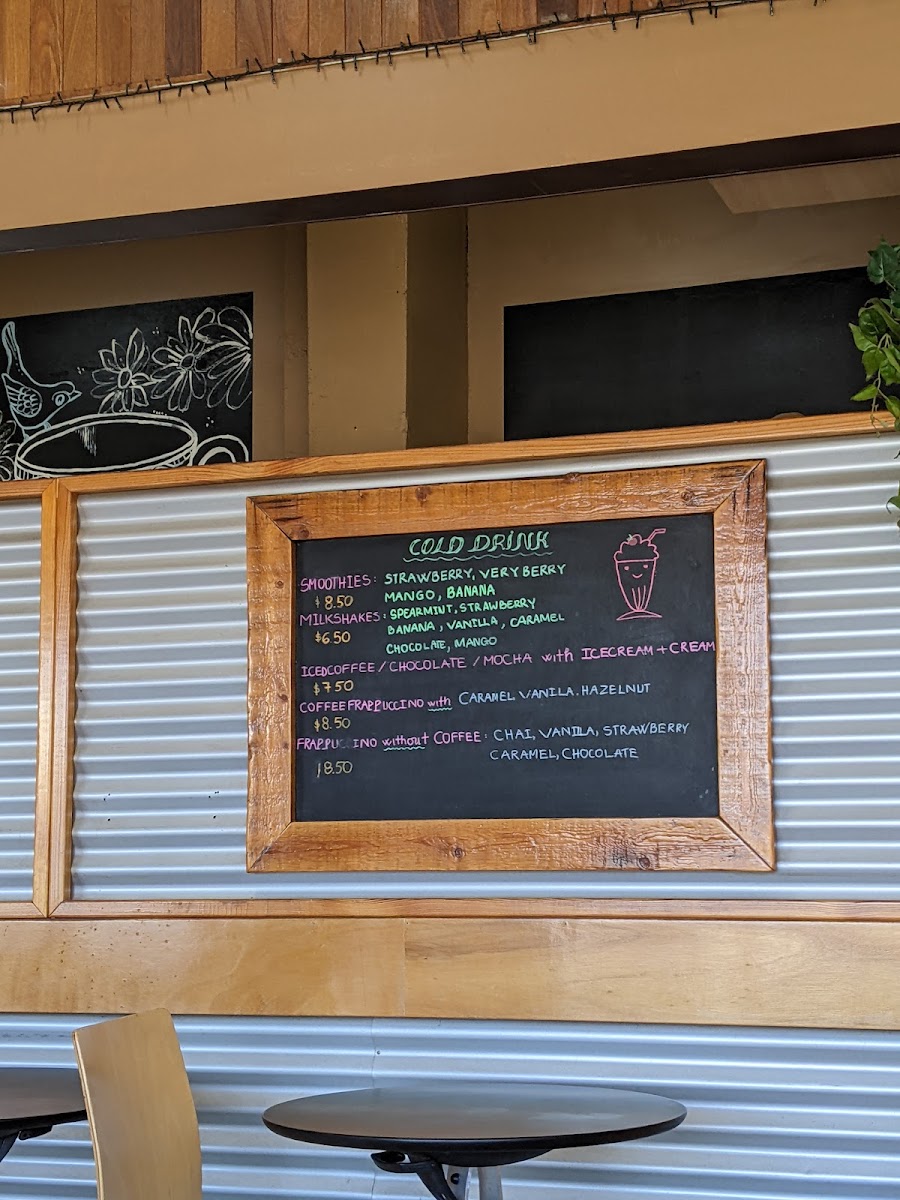 COLD DRINK
SMOOTHIES: STRAWBERRY, VERY BERRY
$8.50 MANGO, BANANA
MILKSHAKES: SPEARMINT, STRAWBERRY
$6.50 BANANA, VANILLA, CARAMEL
CHOCOLATE, MANGO
ICEDCOFFEE / CHOCOLATE / MOCHA with ICECREAM + CREAM
$7.50
COFFEE FRAPPUCCINO with CARAMEL VANILA, HAZELNUT
$8.50
FRAPPUCCINO without COFFEE: CHAI, VANILLA, STRAWBERRY
CARAMEL, CHOCOLATE
$8.50